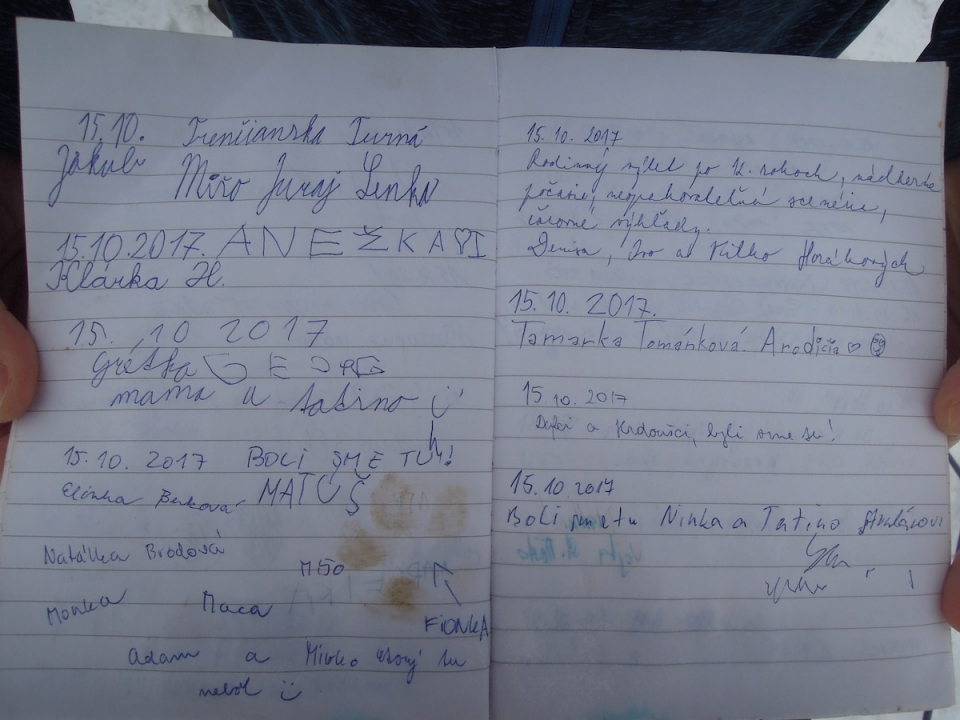 15.10. Trenčianska Turná
Jakub Mišo Juraj Lenka
15.10.2017. ANEŽKA
Klárka H.
15. 10 2017
Grétka
mama a tatino
15.10.2017 BOLI SME TU!
Elinka MATÚŠ
Natálka Brodová
Monka Maca
FIONKA
Adam a Mirko ktorý tu
nebol
15.10.2017
Rodinný výlet po 12. rokoch, nádherné
počasie, neopakovateľná scenéria,
úžasné výhľady.
Denisa, Ivo a Horákových
15.10.2017.
Tamarka Tománková. A rodičia
15.10.2017
a boli sme tu!
15.10.2017
Boli sme tu Ninka a Tatino